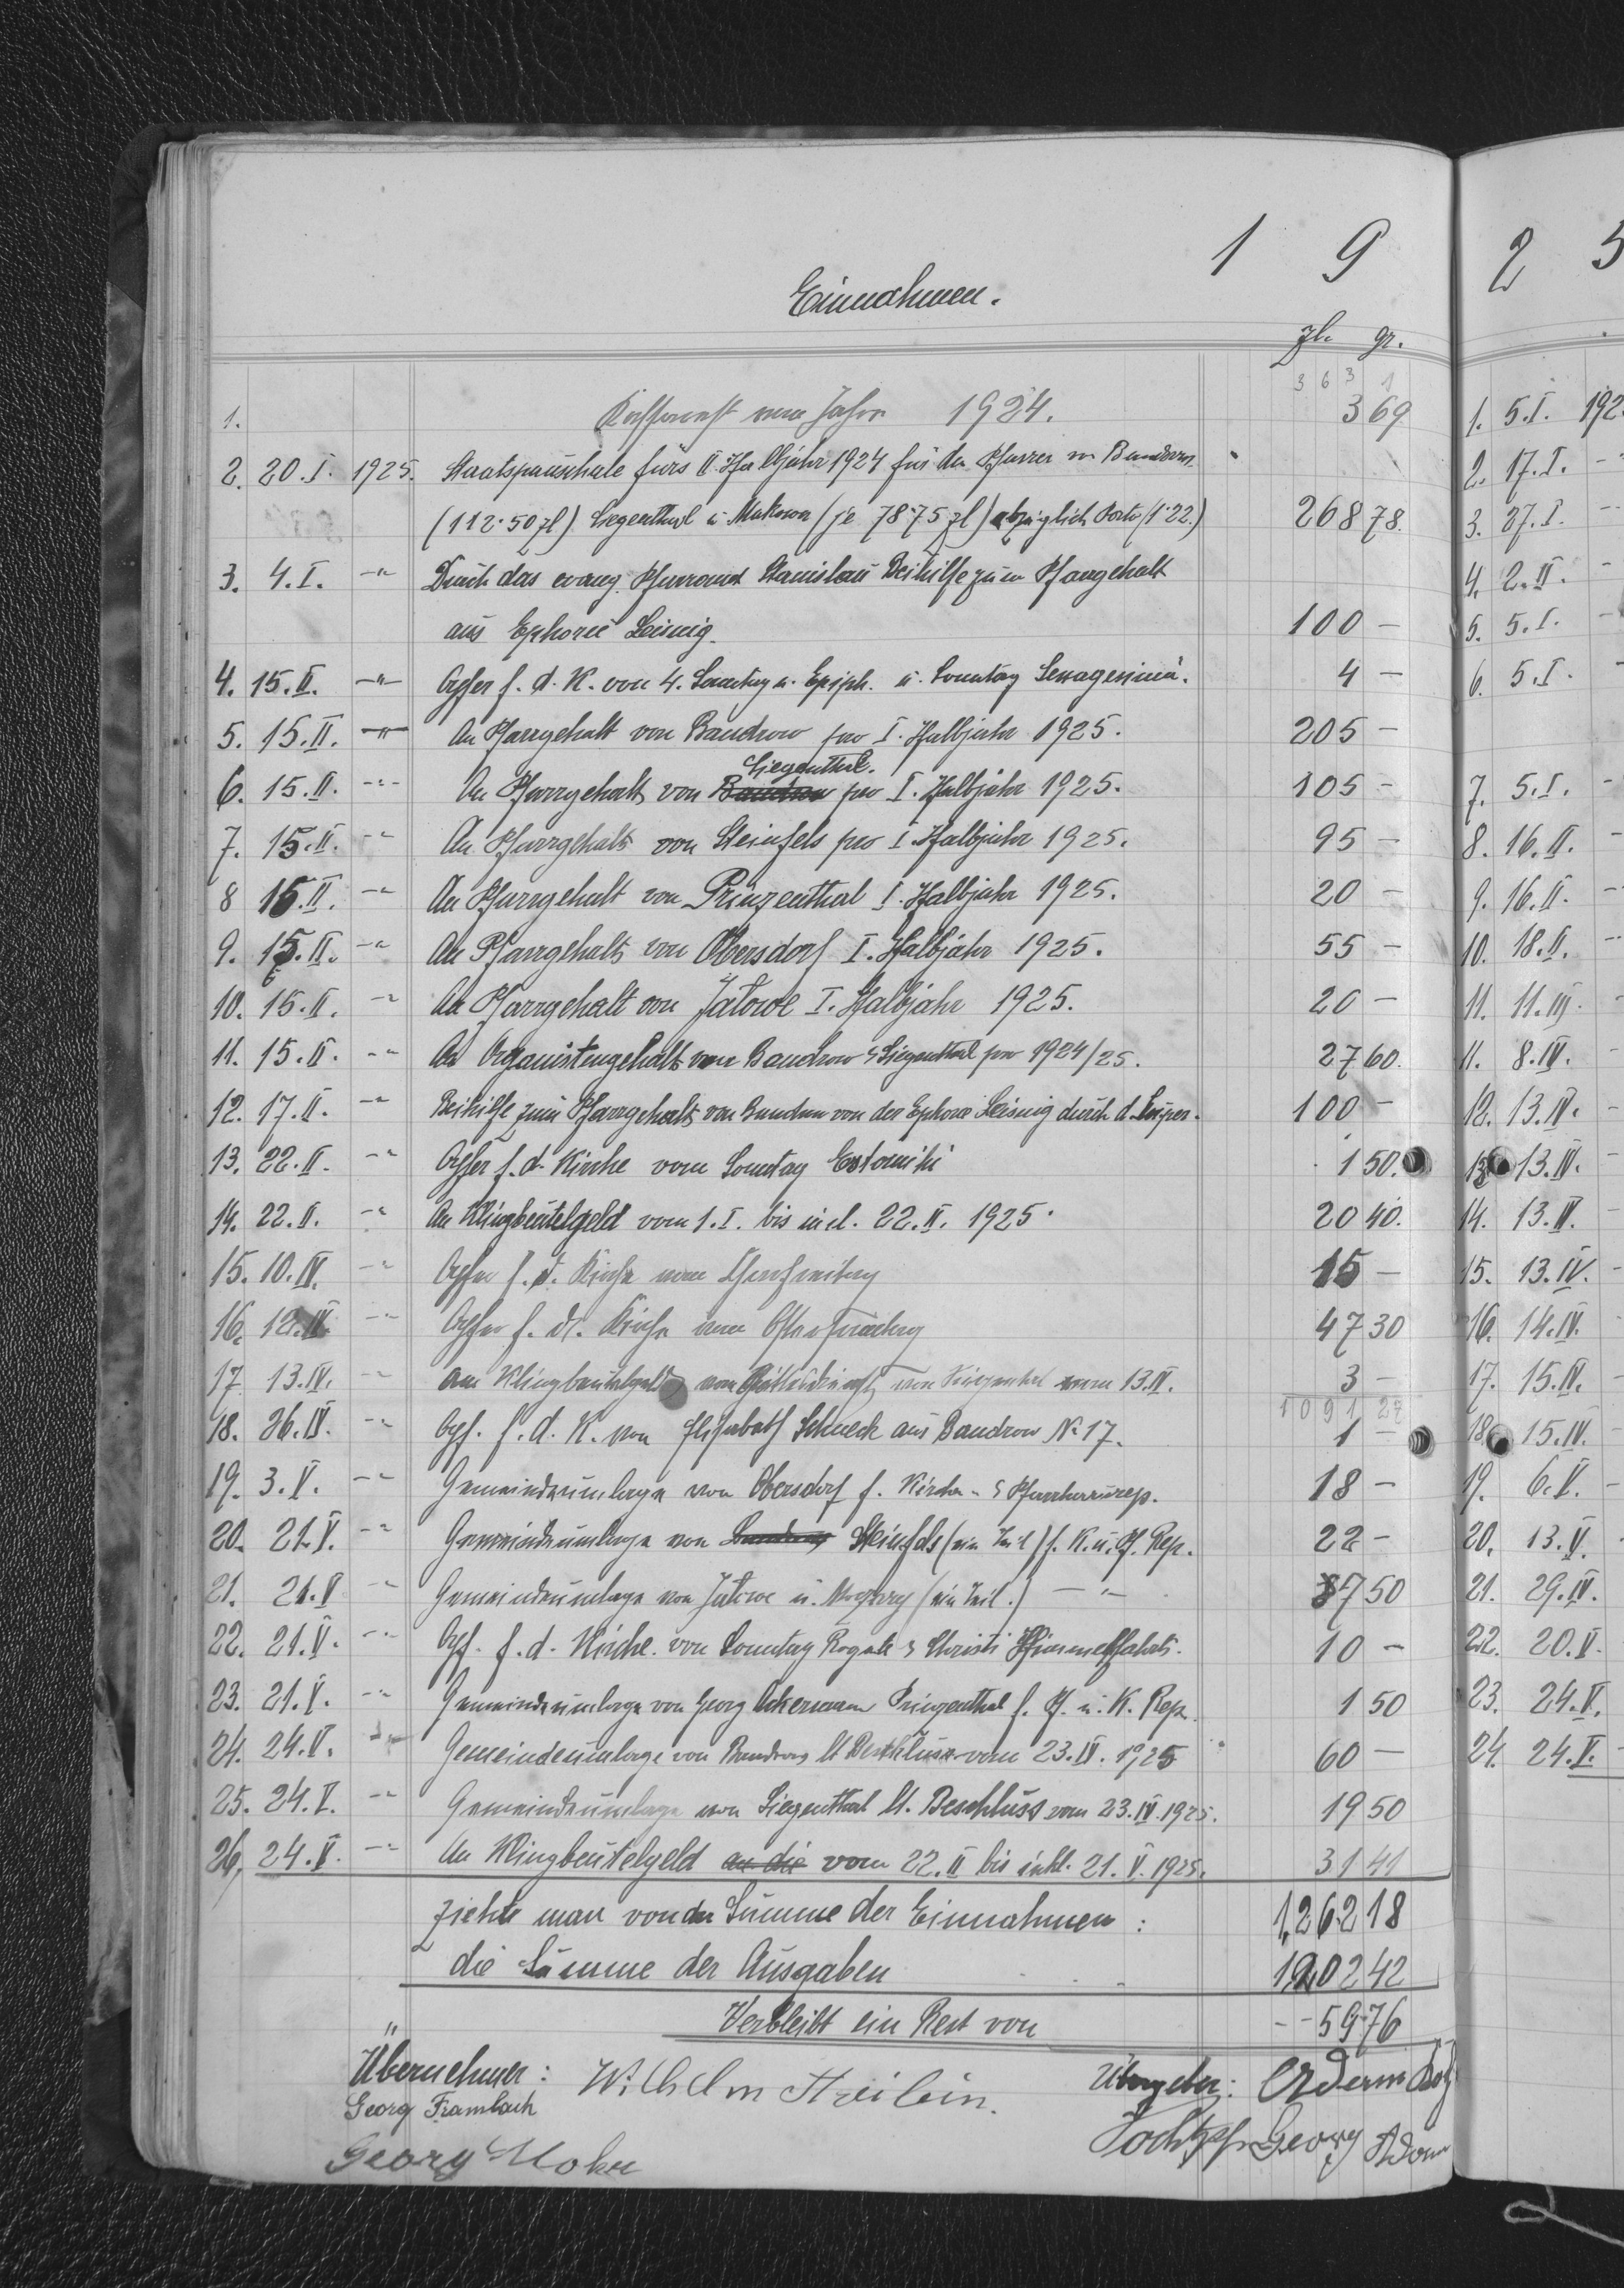 1 9 2 5
Einnahmen.
zł. gr.
3 6 3 1
1. Kassarest vom Jahre 1924. 3 69
2. 20.I. 1925. Staatspauschale fürs II. Halbjahr 1924 für den Pfarrer in Bandrow
(112·50 zł) Siegenthal u. Makowa (je 78·75 zł) abzüglich Porto (1·22.) 268 78.
3. 4.I. -"- Durch das evang. Pfarramt Stanislau Beihilfe zum Pfarrgehalt
aus Ephorie Leisnig. 100 –
4. 15.II. -"- Opfer f. d. K. von 4. Sonntag n. Epiph. u. Sonntag Sexagesimä. 4 –
5. 15.II. -"- An Pfarrgehalt von Bandrow pro I. Halbjahr 1925. 205 –
Siegenthal.
6. 15.II. -"- An Pfarrgehalt von Bandrow pro I. Halbjahr 1925. 105 –
7. 15.II. -"- An Pfarrgehalt von Steinfels pro I. Halbjahr 1925. 95 –
8 15.II. -"- An Pfarrgehalt von Prinzenthal I. Halbjahr 1925. 20 –
9. 15.II. -"- An Pfarrgehalt von Obersdorf I. Halbjahr 1925. 55 –
10. 15.II. -"- An Pfarrgehalt von Jałowe I. Halbjahr 1925. 20 –
11. 15.II. -"- An Organistengehalt von Bandrow & Siegenthal pro 1924/25. 27 60.
12. 17.II. -"- Beihilfe zum Pfarrgehalt von Bandrow von der Ephorie Leisnig durch d. Super. 100 –
13. 22.II. -"- Opfer f. d. Kirche vom Sonntag Estomihi 1 50.
14. 22.II. -"- An Klingbeutelgeld vom 1.I. bis incl. 22.II. 1925. 20 40.
15. 10.IV. -"- Opfer f. d. Kirche vom Charfreitag 15 –
16. 12.IV. -"- Opfer f. d. Kirche vom Ostersonntag 47 30
17 13.IV. -"- An Klingbeutelgeld vom Gottesdienst von Siegenthal vom 13.IV. 3 –
1091 27
18. 26.IV. -"- Opf. f. d. K. von Elisabeth Schneck aus Bandrow No 17. 1 –
19. 3.V. -"- Gemeindeumlage von Obersdorf f. Kirchen- & Pfarrhausrep. 18 –
20. 21.V. -"- Gemeindeumlage von Steinfels (ein Teil) f. K. u. Pf. Rep. 22 –
21. 21.V -"- Gemeindeumlage von Jałowe u. (ein Teil.) -"- 7 50
22. 21.V. -"- Opf. f. d. Kirche von Sonntag Rogate & Christi Himmelfahrt. 10 –
23. 21.V. -"- Gemeindeumlage von Georg Ackermann Prinzenthal f. Pf. u. K. Rep. 1 50
24. 24.V. -"- Gemeindeumlage von Bandrow lt Beschluss vom 23.IV. 1925 60 –
25. 24.V. -"- Gemeindeumlage von Siegenthal lt. Beschluss vom 23.IV.1925. 19 50
26. 24.V. -"- An Klingbeutelgeld an die vom 22.II bis inkl. 21.V. 1925. 31 41
Ziehte man von der Summe der Einnahmen : 1,262 18
die Summe der Ausgaben 1,202 42
Verbleibt ein Rest von -- 59·76
Übernehmer: Wilhelm Streilein. Übergeber: Adam
Georg Frambach Georg Adam
Georg Mohr
1. 5.I. 192
2. 17.I. -
3. 27.I. -
4. 2.II. -
5. 5.I. -
6. 5.I.
7. 5.I. -
8. 16.II. -
9. 16.II. -
10. 18.II. -
11. 11.III. -
11. 8.IV. -
12. 13.IV. -
13. 13.IV. -
14. 13.IV. -
15. 13.IV. -
16. 14.IV. -
17. 15.IV. -
18. 15.IV. -
19. 6.V. -
20. 13.V. -
21. 29.IV. -
22. 20.V. -
23. 24.V. -
24. 24.V. -